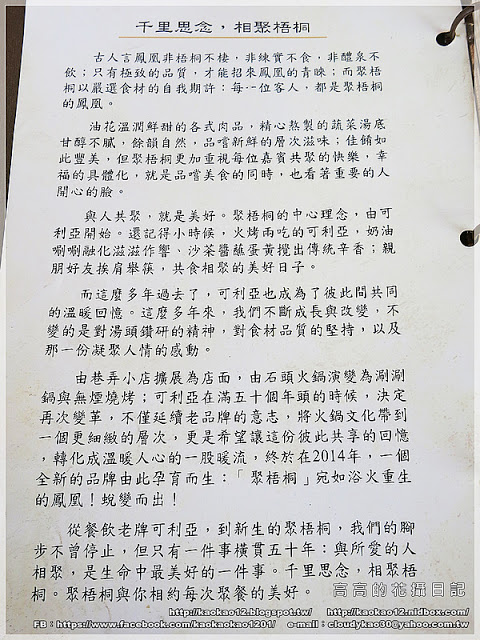 千里思念，相聚梧桐
古人言鳳凰非梧桐不棲，非練實不食，非醴泉不
飲；只有極致的品質，才能招來鳳凰的青睞；而聚梧
桐以嚴選食材的自我期許：每一位客人，都是聚梧桐
的鳳凰。
油花溫潤鮮甜的各式肉品，精心熬製的蔬菜湯底
甘醇不膩，餘韻自然，品嚐新鮮的層次滋味；佳餚如
此豐美，但聚梧桐更加重視每位嘉賓共聚的快樂，幸
福的具體化，就是品嚐美食的同時，也看著重要的人
開心的臉。
與人共聚，就是美好。聚梧桐的中心理念，由可
利亞開始。還記得小時候，火烤兩吃的可利亞，奶油
唰唰融化滋滋作響、沙茶醬蘸蛋黃攪出傳統辛香；親
朋好友挨肩舉筷，共食相聚的美好日子。
而這麼多年過去了，可利亞也成為了彼此間共同
的溫暖回憶。這麼多年來，我們不斷成長與改變，不
變的是對湯頭鑽研的精神，對食材品質的堅持，以及
那一份凝聚人情的感動。
由巷弄小店擴展為店面，由石頭火鍋演變為涮涮
鍋與無煙燒烤；可利亞在滿五十個年頭的時候，決定
再次變革，不僅延續老品牌的意志，將火鍋文化帶到
一個更細緻的層次，更是希望讓這份彼此共享的回憶
，轉化成溫暖人心的一股暖流，終於在2014年，一個
全新的品牌由此孕育而生：「聚梧桐」宛如浴火重生
的鳳凰！蛻變而出！
從餐飲老牌可利亞，到新生的聚梧桐，我們的腳
步不曾停止，但只有一件事橫貫五十年：與所愛的人
相聚，是生命中最美好的一件事。千里思念，相聚梧
桐。聚梧桐與你相約每次聚餐的美好。
高高的花攝日記
http://kaokao12.blogspot.tw/ http://kaokao12.nidbox.com/
FB：https://www.facebook.com/kaokao1201/ e-mail：cloudykao30@yahoo.com.tw